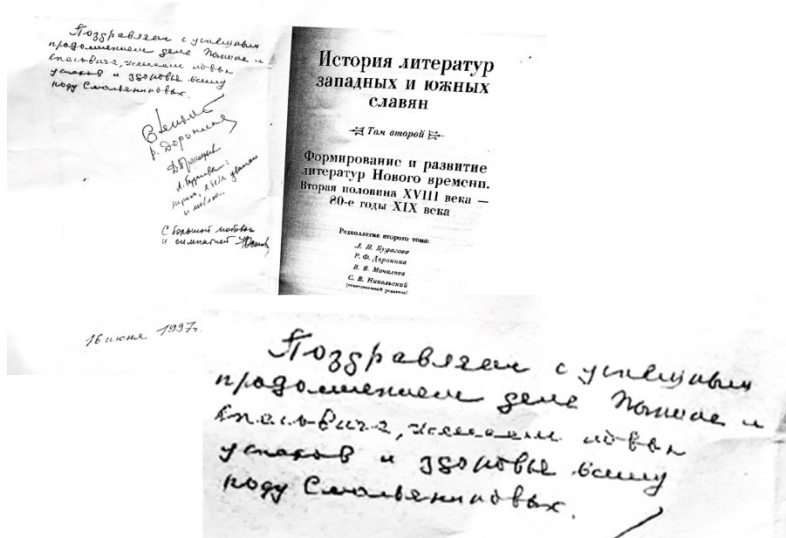 Поздравляем с успешным
продолжением дела Пыпина и
Спасовича, желаем новых
успехов и здоровья всему
роду Смольяниновых.
Р. Доронина
Л. Будагова:
уважаю
и люблю
С большой любовью
и симпатией
16 июня 1997г.
История литератур
западных и южных
славян
Том второй
Формирование и развитие
литератур Нового времени.
Вторая половина XVIII века —
80-е годы XIX века
Редколлегия второго тома:
Л. Н. Будагова
Р. Ф. Доронина
В. В. Мочалова
С. В. Никольский
(ответственный редактор)
Поздравляем с успешным
продолжением дела Пыпина и
Спасовича, желаем новых
успехов и здоровья всему
роду Смольяниновых.